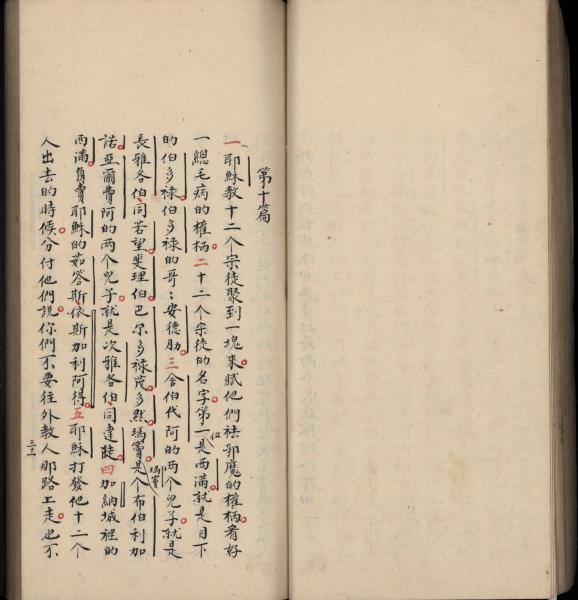 第十篇
一耶穌教十二个宗徒聚到一塊來賦他們祛邪魔的權柄肴好
一總毛病的權柄二十二个宗徒的名字第一位是西滿就是目下
的伯多禄伯多禄的哥:安德肋三舍伯代阿的两个兒子就是
長雅各伯同若望斐理伯巴尔多禄茂多黙瑪竇瑪竇是个布伯利加
諾亞爾費阿的两个兒子就是次雅各伯同達陡四加納城裡的
西滿負賣耶穌的茹答斯依斯加利阿得五耶穌打發他十二个
人出去的時候分付他們說你們不要往外教人那路上走也不